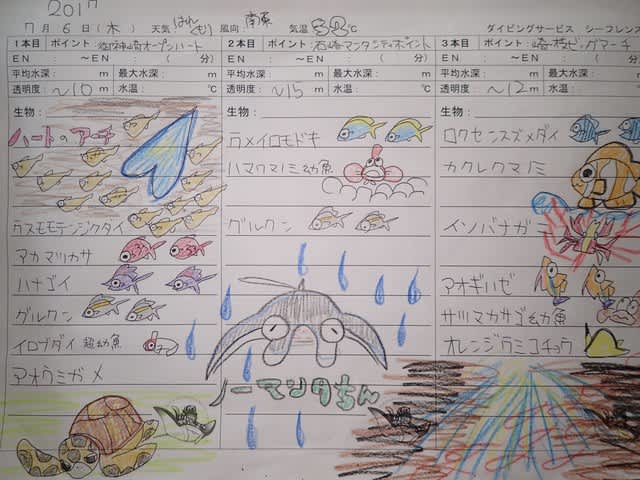 2017
7月6日(木) 天気 はれ くもり 風向 南東 気温 33℃ ダイビングサービス シーフレンズ
1本目 ポイント:御神崎オープンハート
EN : ~EN : ( 分)
平均水深: m 最大水深: m
透明度: ~10m 水温: ℃
生物:
ハートのアーチ
クスモモテンジクダイ
アカマツカサ
ハナゴイ
グルクン
イロブダイ 超幼魚
アオウミガメ
2本目 ポイント:石崎マンタシティポイント
EN : ~EN : ( 分)
平均水深: m 最大水深: m
透明度: ~15m 水温: ℃
生物:
ウメイロモドキ
ハマクマノミ幼魚
グルクン
ノーマンタちん
3本目 ポイント:崎枝ビッグアーチ
EN : ~EN : ( 分)
平均水深: m 最大水深:
透明度: ~12m 水温:
生物:
ロクセンスズメダイ
カクレクマノミ
イソバナガニ
アオギハゼ
サツマカサゴ幼魚
オレンジウミコチョウ